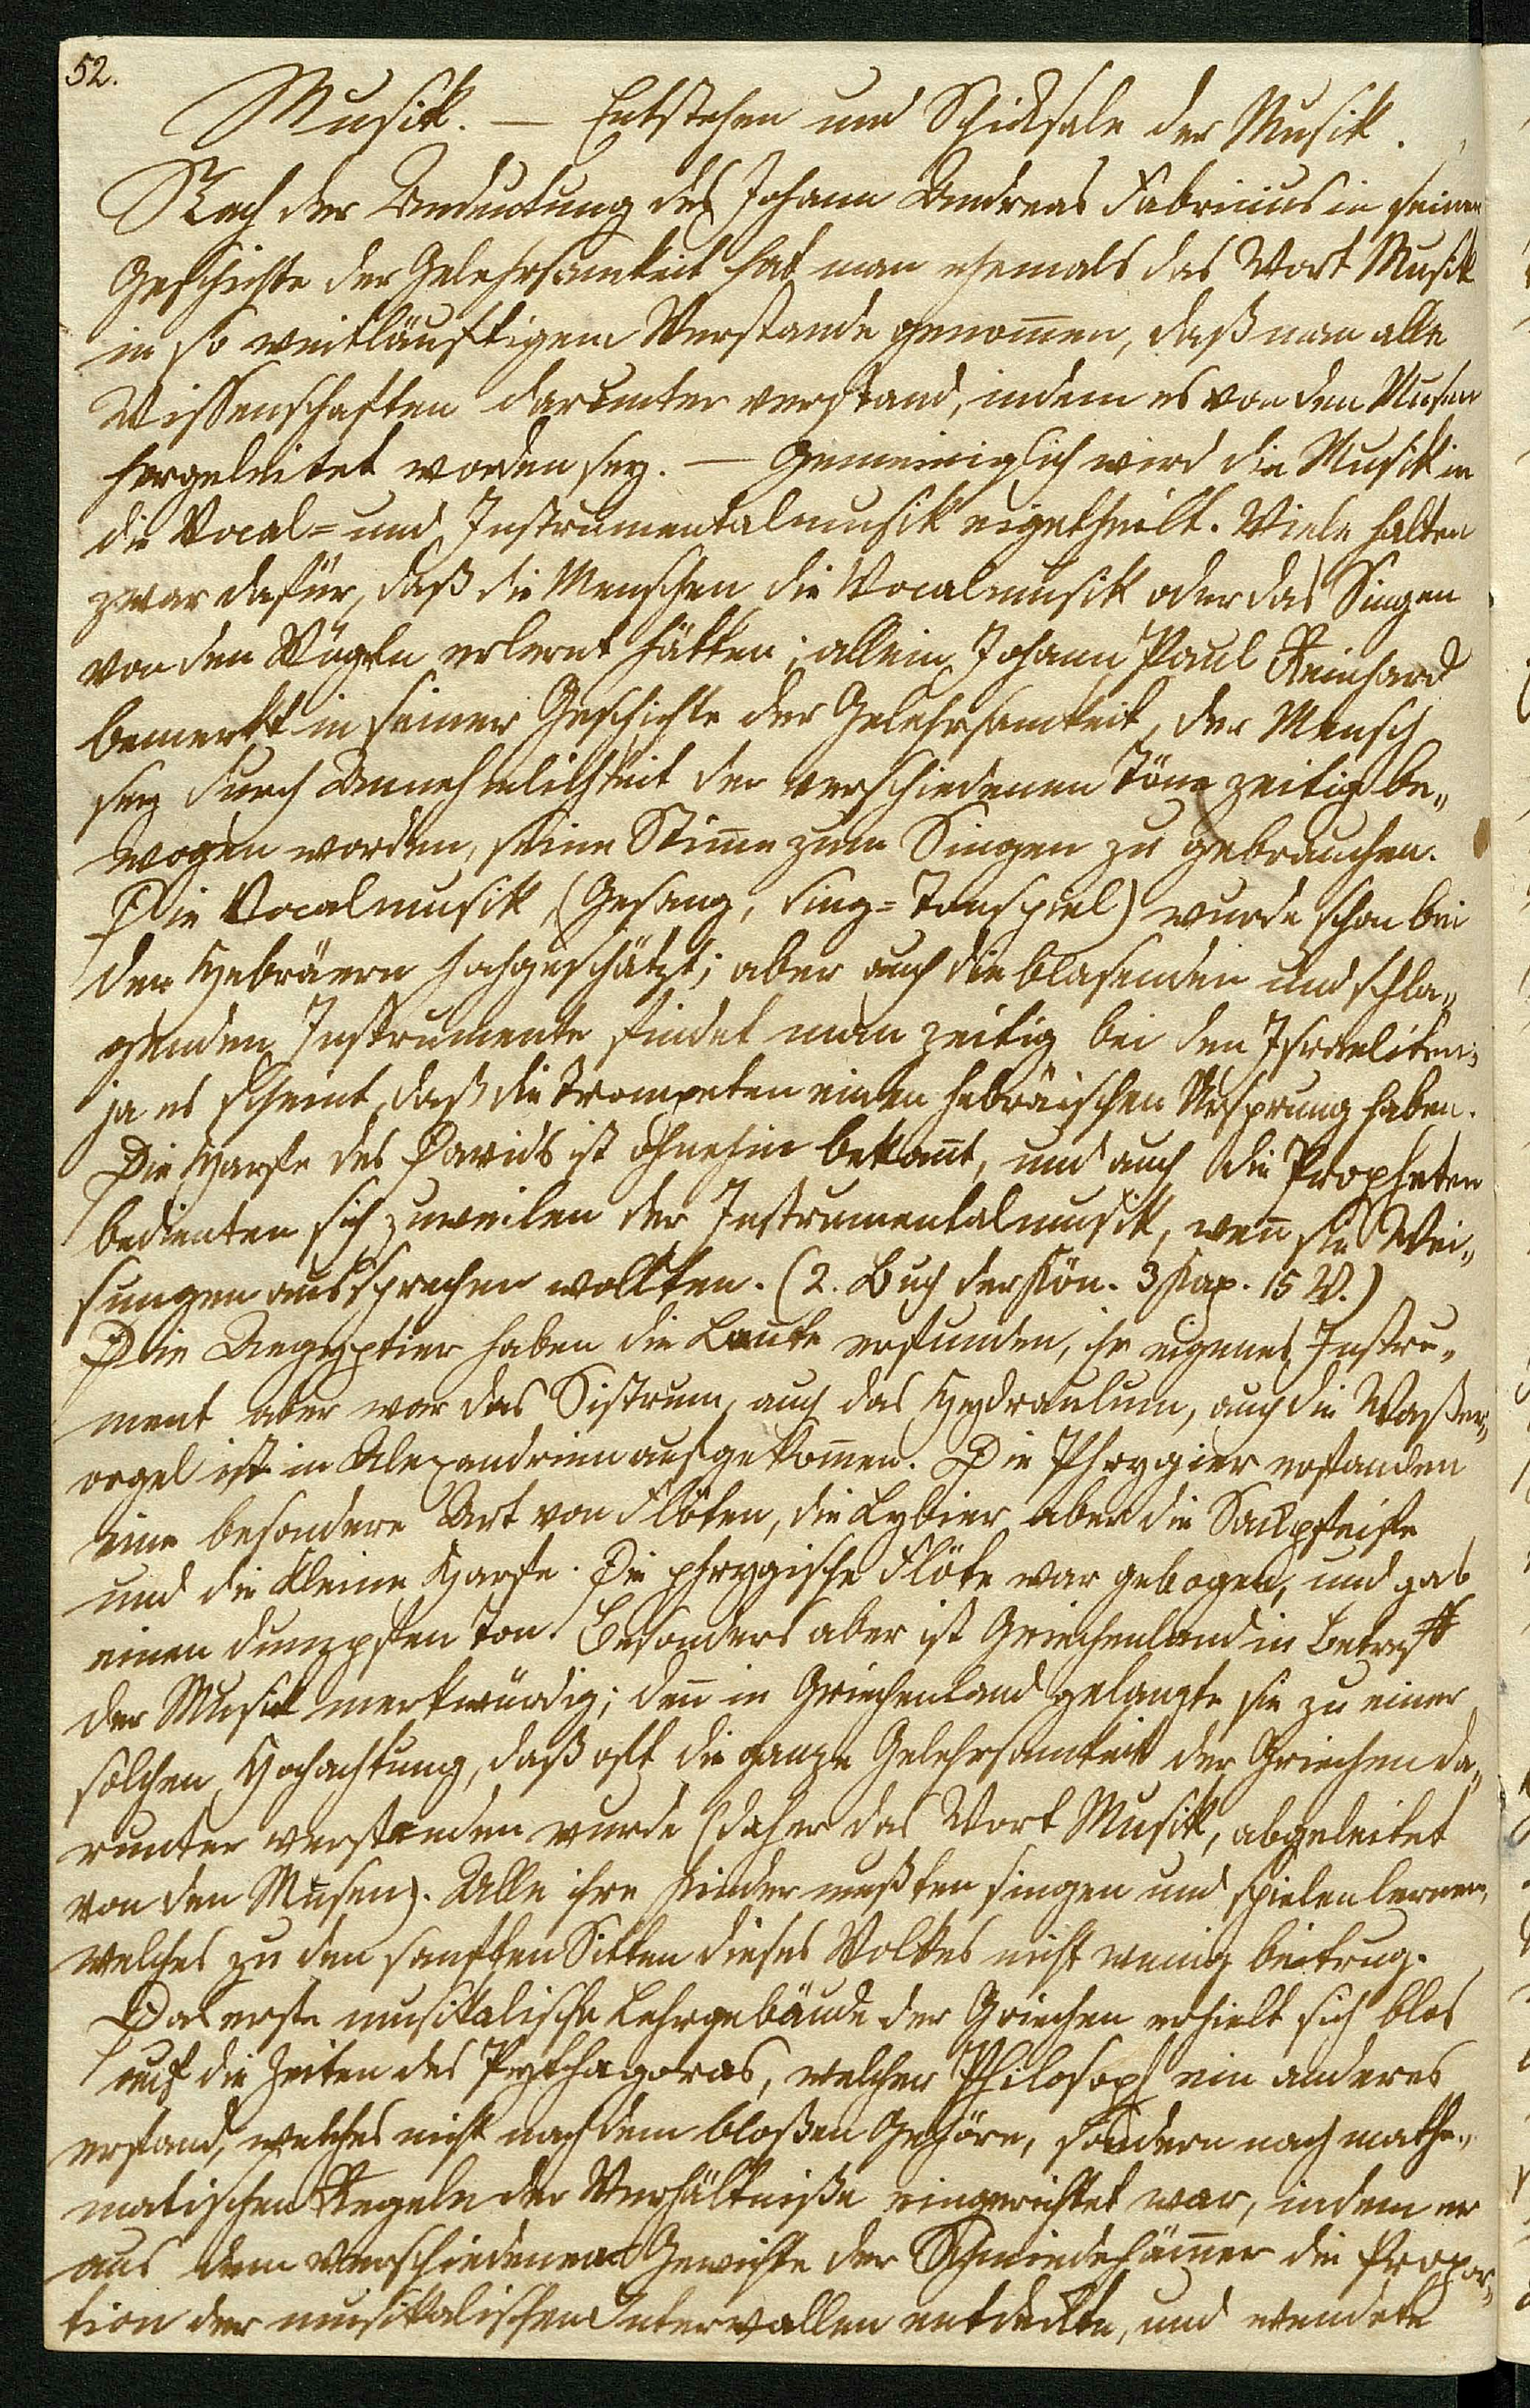 52.
Musik. — Entstehen und Schicksale der Musik.
Nach der Andeutung des Johann Andreas Fabricius in seiner
Geschichte der Gelehrsamkeit hat man ehemals das Wort Musik
in so weitläuftigem Verstande genom̄en, daß man alle
Wissenschaften darunter verstand, indem es von den Musen
hergeleitet worden sey. — Gemeiniglich wird die Musik in
die Vocal= und Instrumentalmusik eigetheilt. Viele halten
zwar dafür, daß die Menschen die Vocalmusik oder das Singen
von den Vögeln erlernt hätten; allein Johann Paul Reinhard
bemerkt in seiner Geschichte der Gelehrsamkeit, der Mensch
sey durch Annehmlichkeit der verschiedenen Töne zeitig be„
wogen worden, seine Stim̄e zum Singen zu gebrauchen.
Die Vocalmusik, (Gesang, Sing=Tonspiel) wurde schon bei
den Hebräern hochgeschätzt; aber auch die blasenden und schla„
genden Instrumente findet man zeitig bei den Israeliten;
ja es scheint, daß die Trompeten einen hebräischen Ursprung haben.
Die Harfe des Davids ist ohnehin bekan̄t, und auch die Propheten
bedienten sich zuweilen der Instrumentalmusik, wen̄ sie Wei„
sungen aussprechen wollten. (2. Buch der Kön. 3 Kap. 15 V.)
Die Aegyptier haben die Laute erfunden, ihr eigenes Instru„
ment aber war das Sistrum, auch das Hydraulum, auch die Waßer„
orgel ist in Alexandrien aufgekom̄en. Die Phrygier erfanden
eine besondere Art von Flöten, die Lybier aber die Sackpfeife
und die kleine Harfe. Die phrygische Flöte war gebogen, und gab
einen dumpfen Ton. Besonders aber ist Griechenland in Betreff
der Musik merkwürdig; den̄ in Griechenland gelangte sie zu einer
solchen Hochachtung, daß oft die ganze Gelehrsamkeit der Griechen da„
runter verstanden wurde (daher das Wort Musik, abgeleitet
von den Musen). Alle ihre Kinder mußten singen und spielen lernen,
welches zu den sanften Sitten dieses Volkes nicht wenig beitrug.
Das erste musikalische Lehrgebäude der Griechen erhielt sich blos
auf die Zeiten des Pythagoras, welcher Philosoph ein anderes
erfand, welches nicht nach dem bloßen Gehöre, sondern nach mathe„
matischen Regeln der Verhältniße eingerichtet war, indem er
aus dem verschiedenen Gewichte der Schmiedehäm̄er die Propor„
tion der musikalischen Intervallen entdeckte, und wendete